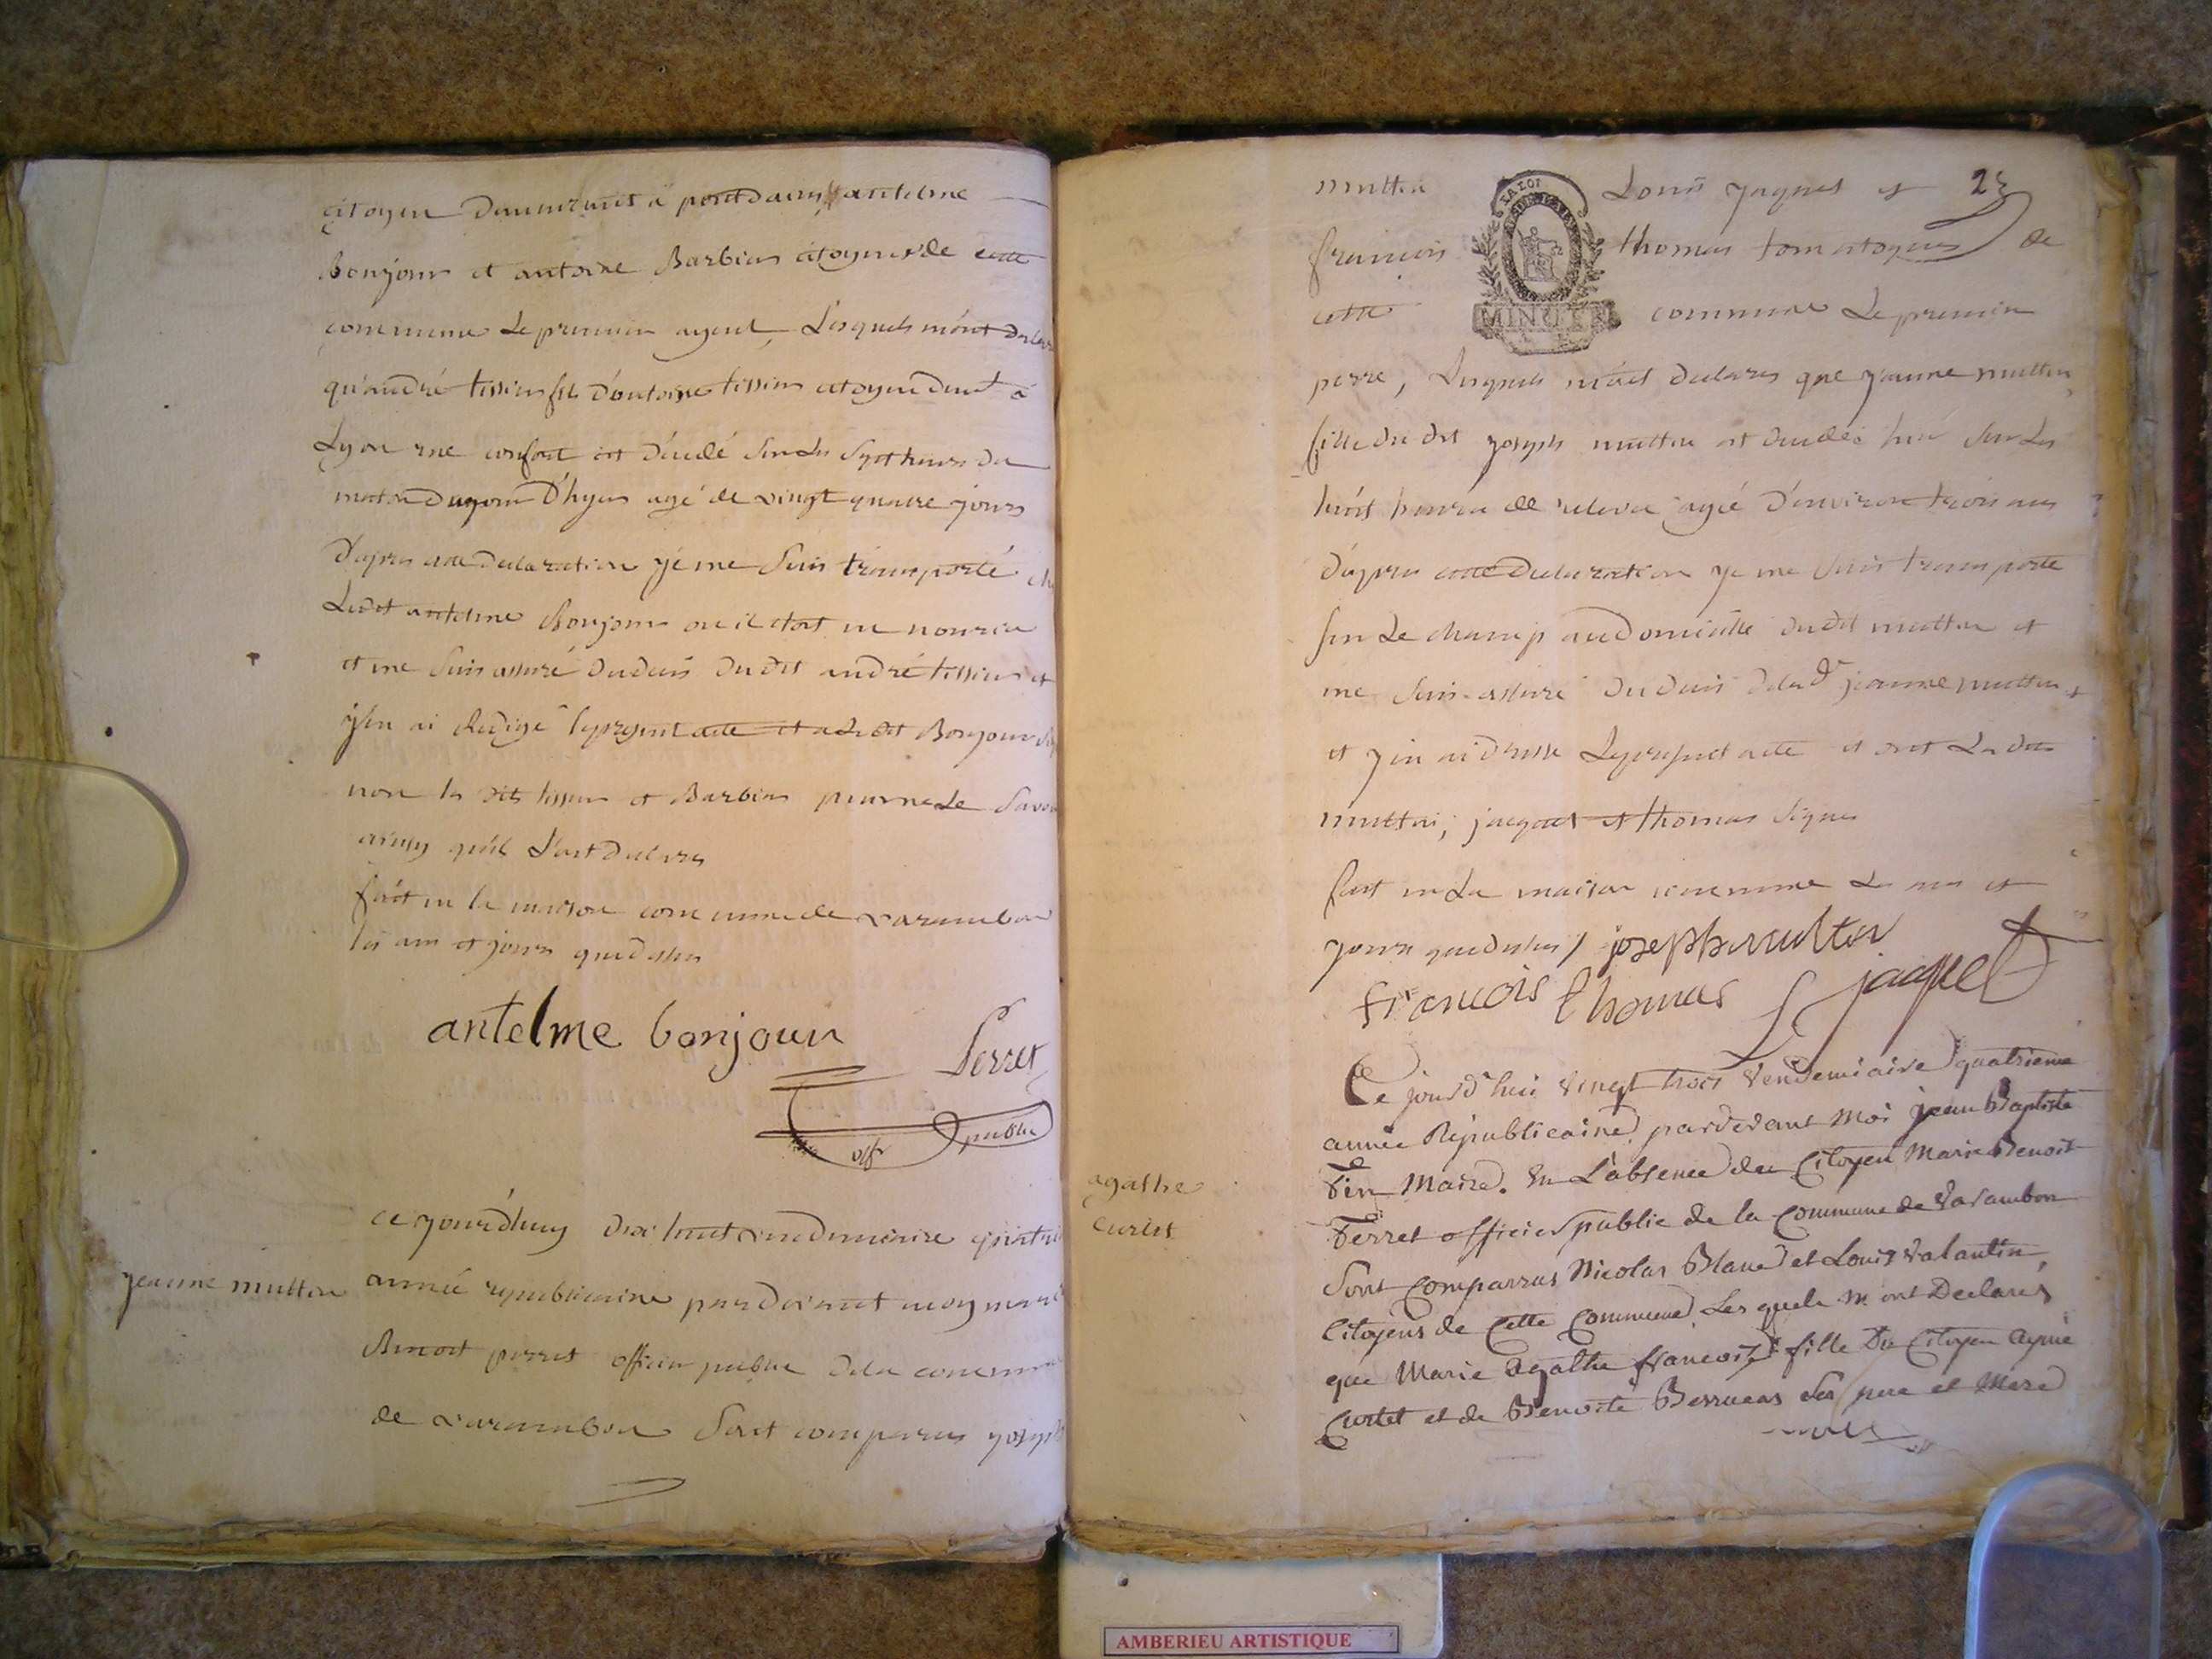 citoyen demeurant à pontdains antelme
bonjour et antoine Barbier citoyens de cette
commune Le premier agent, Lesquels m'ont declaré
qu'andré tissier fils d'antoine tissier citoyen demt à
Lyon rue confort est décédé sur les sept heures du
matin du jour d'hyer agé de vingt quatre jours
d'apres cette declaration je me suis transporté ché
Ledit antelme Bonjour ou il etoit en nourice
et me suis assuré du deces du dit andré tissier et
j'en ai redigé le present acte et a le dit Bonjour
non les dits tissier et Barbier pour ne le savoir
ainsy qu'ils l'ont declarés
fait en la maison commune de varambon
les an et jours que dessus
antelme bonjour
Perret
off public
jeanne mutton
ce jourd'huy dix huit vendemiaire quatrie
année republicaine pardevant moy marie
Benoit perret officier public de la commune
de varambon sont comparus joseph
mutton Louis jaques et 23
LA LOI
MINUTE
francois thomas tous citoyens de
cette commune Le premier
perre, Lesquels m'ont declares que jeanne mutton
fille du dit joseph mutton est decedée hier sur les
huit heures de relevée agée d'environ trois ans
d'apres cette declaration je me suis transporté
sur Le champ au domicille dudit mutton et
me suis assuré du deces de lad. jeanne mutton
et j'en ai dressé Le present acte et ont Les dits
mutton, jaquet et thomas signés
fait en La maison commune Les an et
jours que dessus / joseph mutton
francois thomas L jaquet
agathe
Curtet
Ce jourd'hui vingt trois vendemiaire quatrieme
année Republicaine, pardevant moi jean Baptiste
Maire. En L'absence du Citoyen Marie Benoit
Perret officier public de la Commune de Varambon
Sont comparrus Nicolas Blanc et Louis Valantin,
Citoyens de Cette Commune, Les quels m'ont Declarés
que Marie agathe francoise fille Du Citoyen Aymé
Curtet et de Benoite Berruens Ses pere et Mere